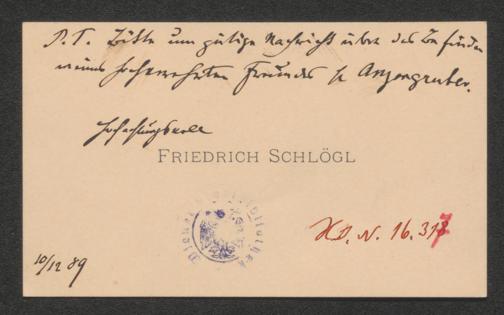 P. T. Bitte um gütige Nachricht über das Befinden
meines hochverehrten Freundes H. Anzengruber.
Hochachtungsvoll
FRIEDRICH SCHLÖGL
I. N. 16.317
10/12 89